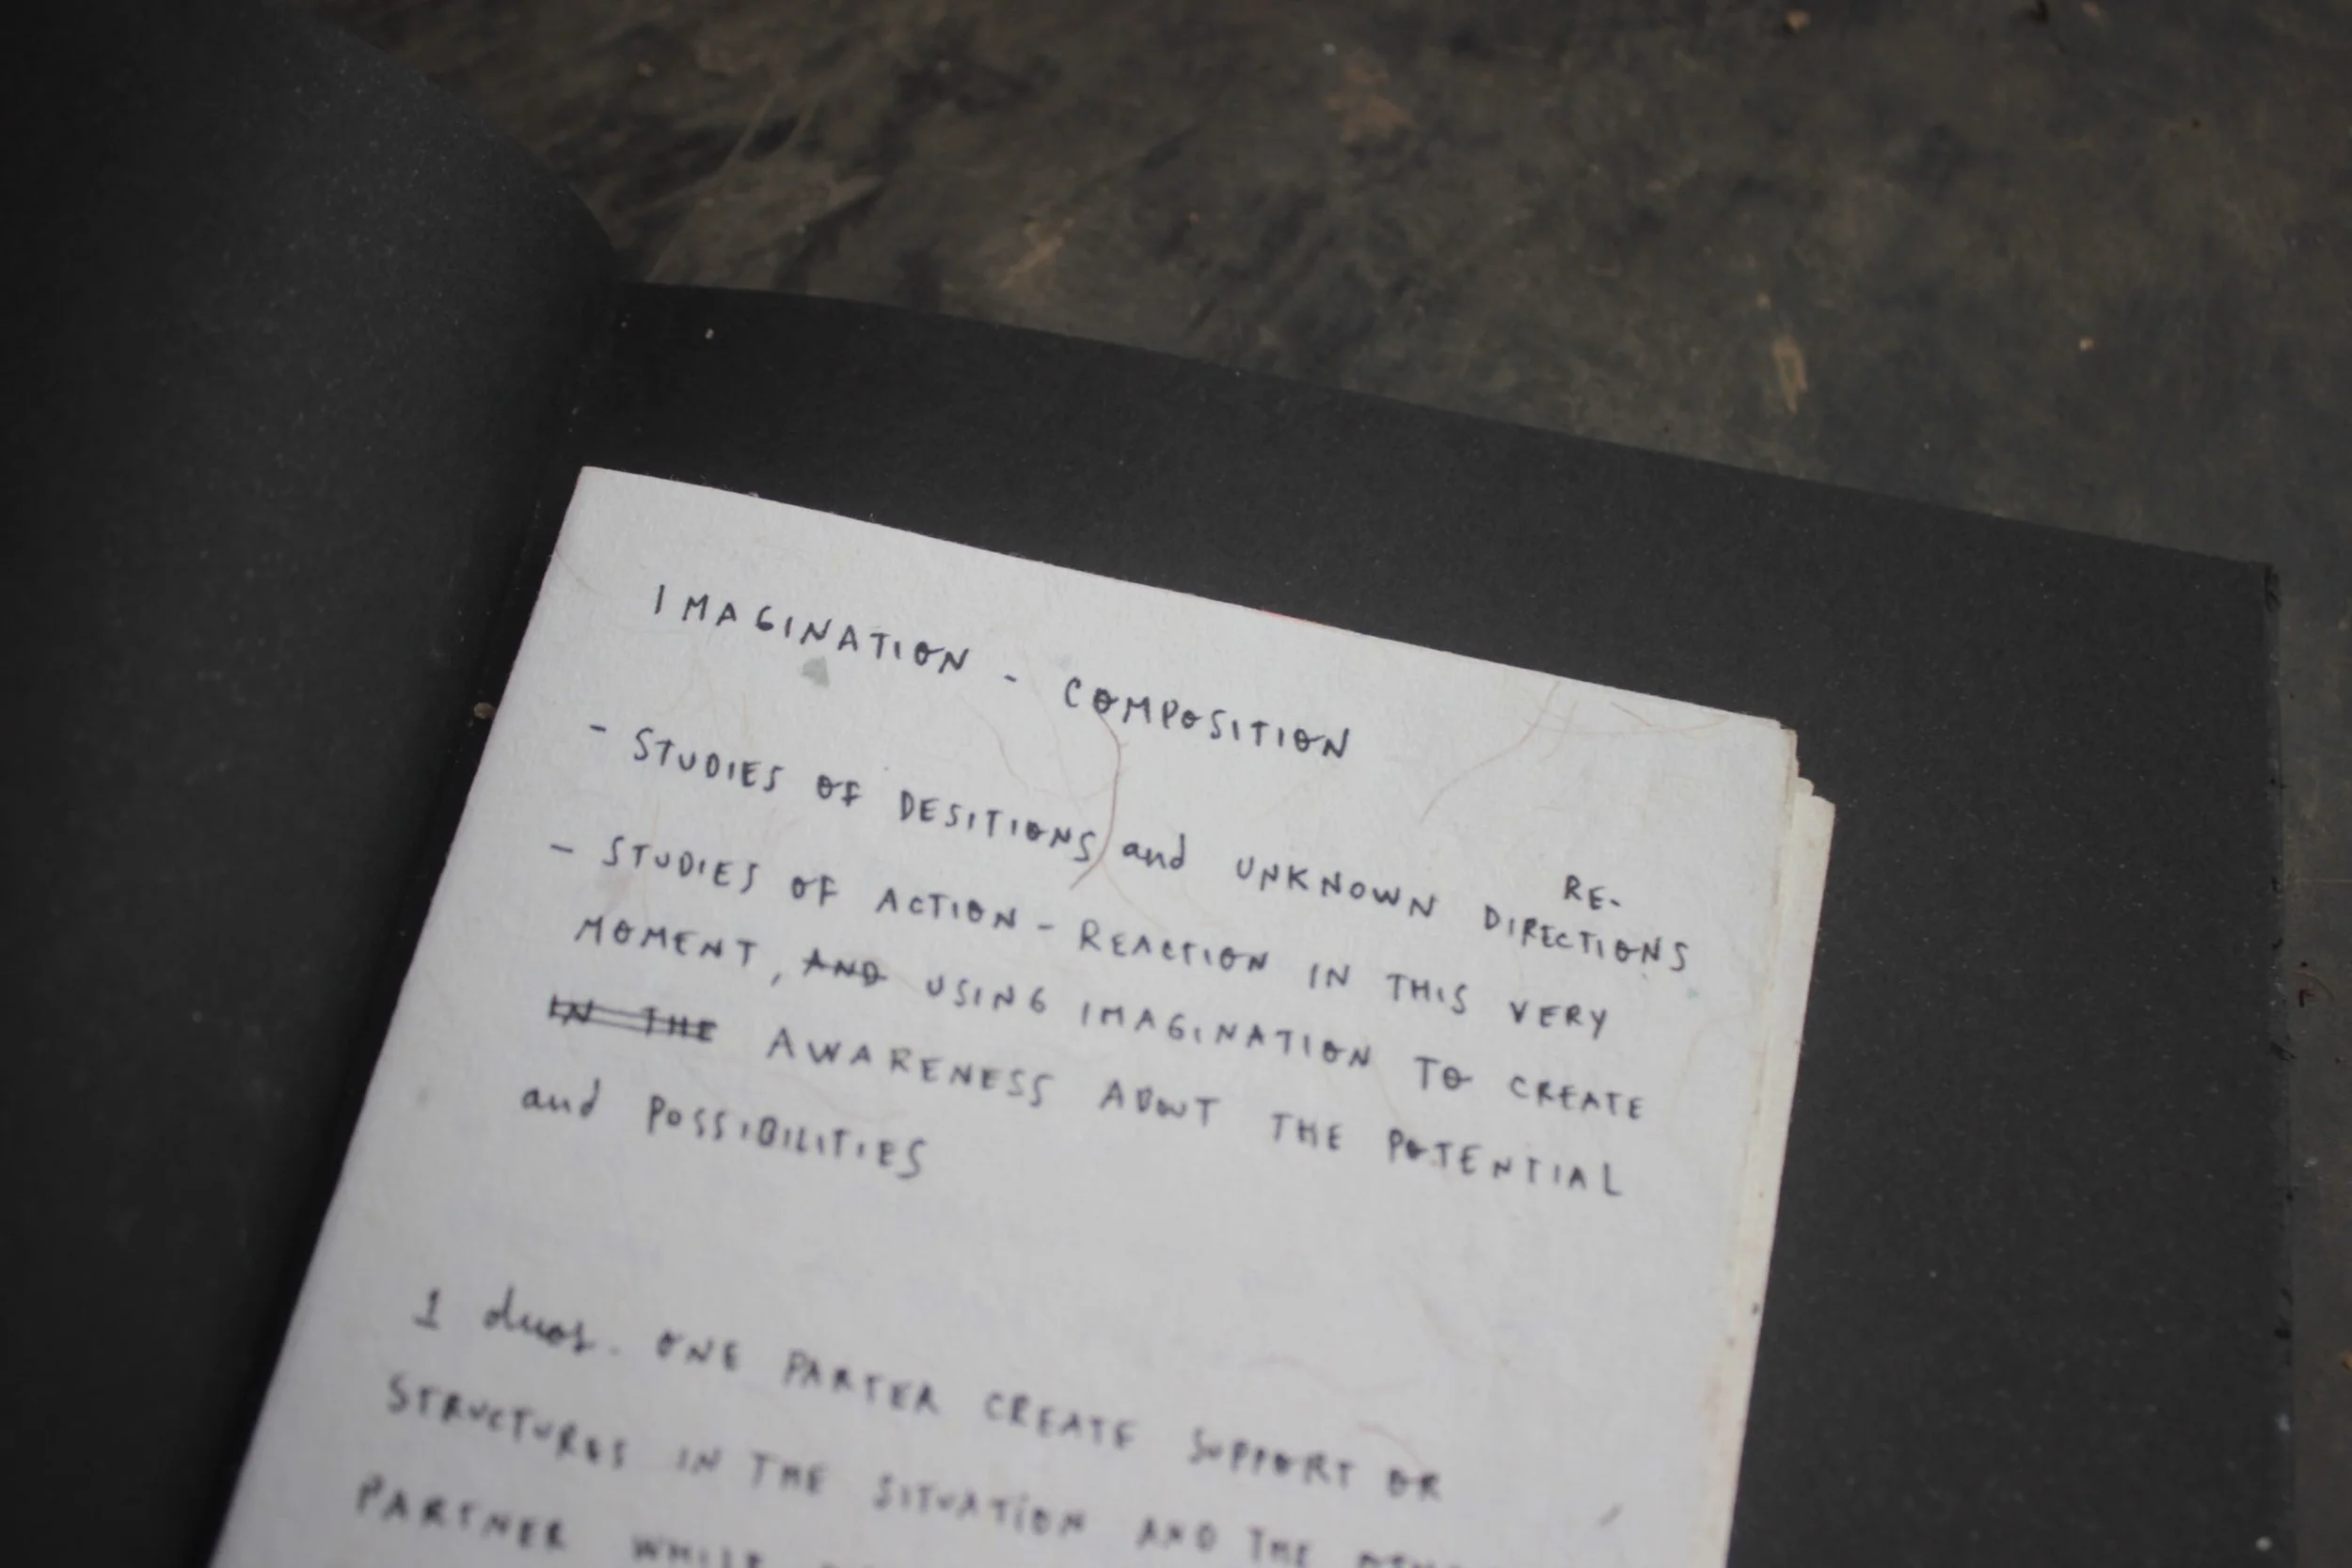 IMAGINATION - COMPOSITION
- STUDIES OF DESITIONS and UNKNOWN RE-DIRECTIONS
- STUDIES OF ACTION - REACTION IN THIS VERY
MOMENT, AND USING IMAGINATION TO CREATE
IN THE AWARENESS ABOUT THE POTENTIAL
and POSSIBILITIES
1 duos. ONE PARTER CREATE SUPPORT OR
STRUCTURES IN THE SITUATION AND THE
PARTNER WHILE